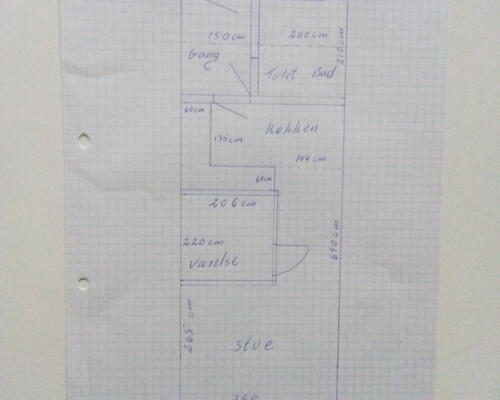 150cm
200cm
Gang
Toilet Bad
210cm
60cm
Køkken
135cm
144cm
68cm
206cm
220cm
Værelse
690cm
265 cm
stue
360